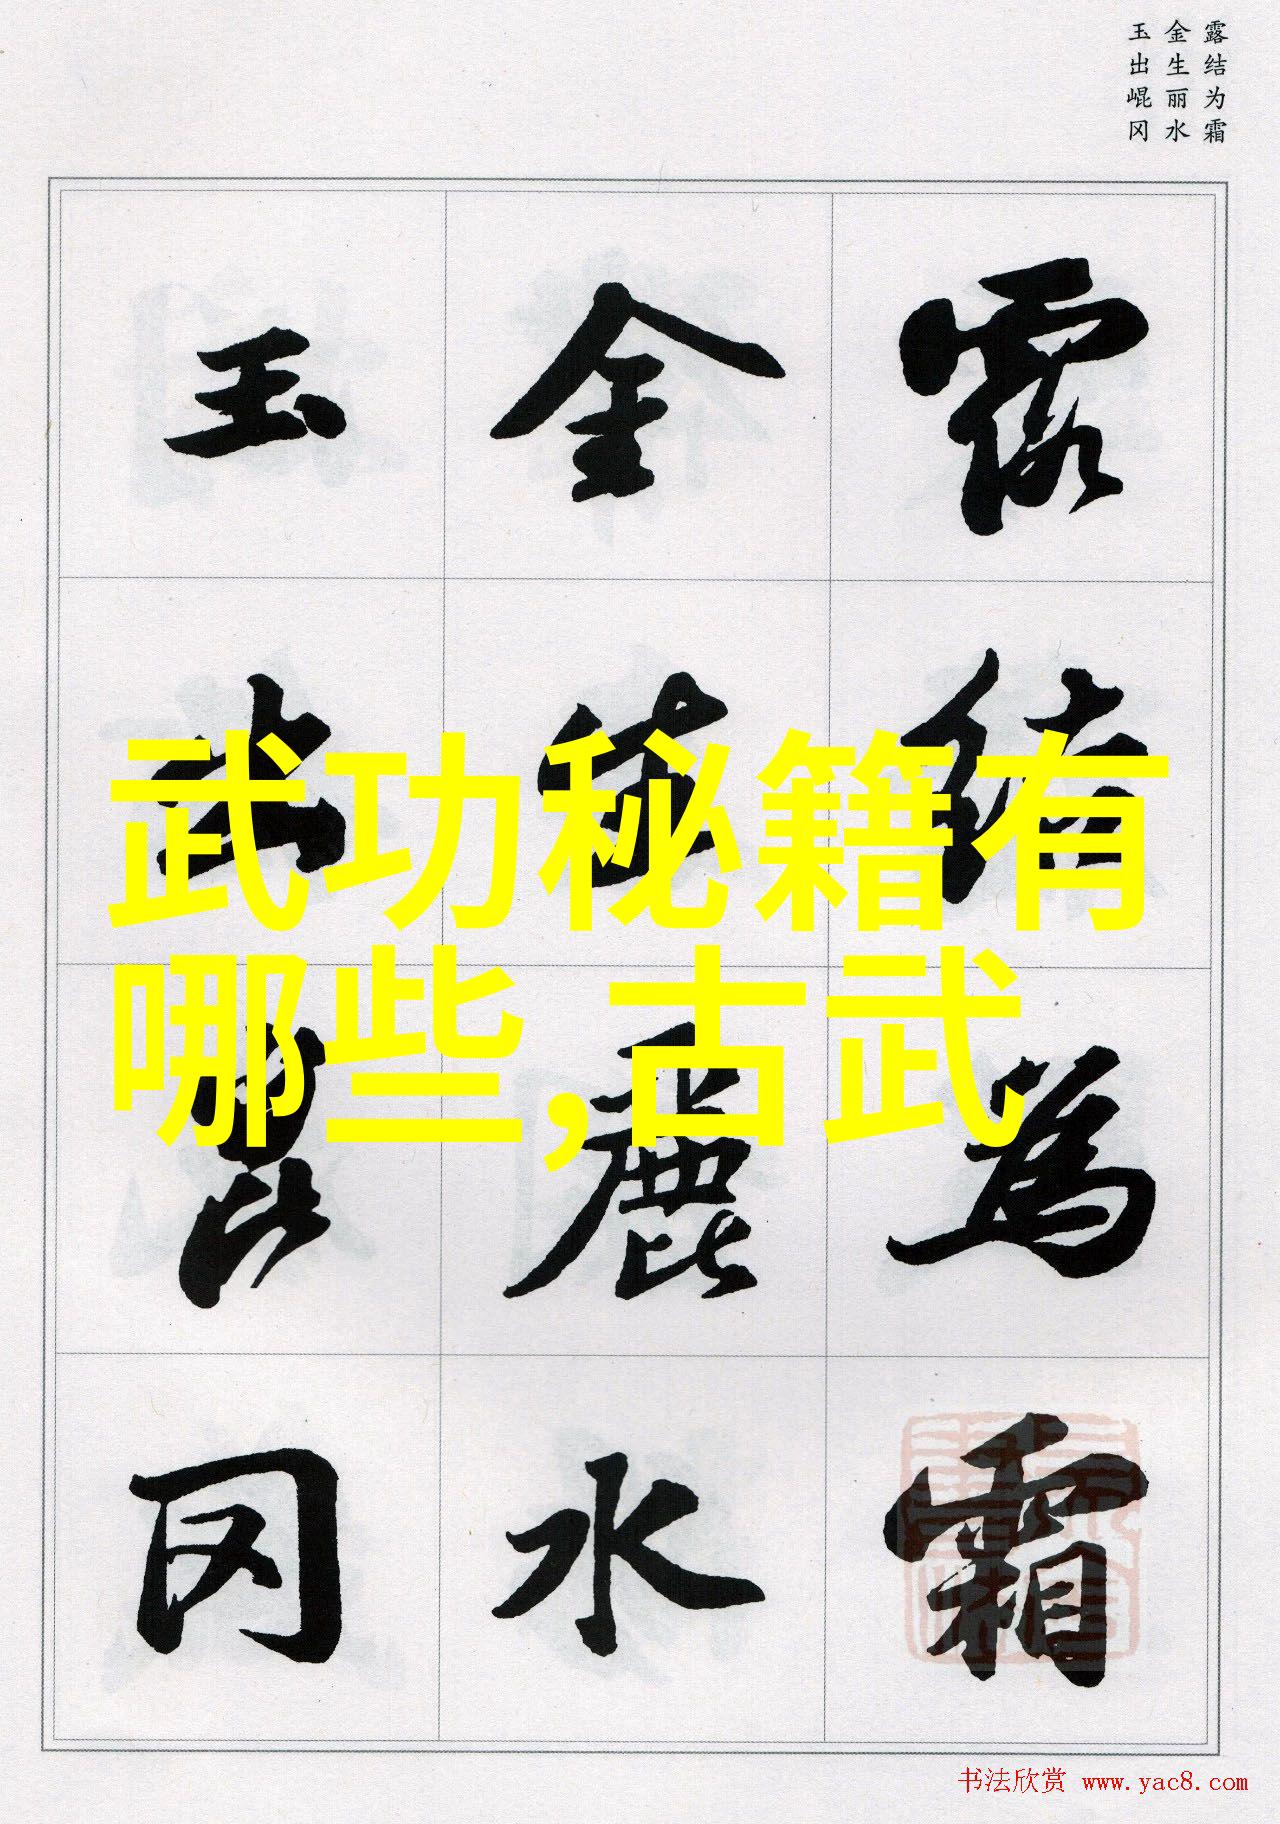 露结为霜
金生丽水
玉出崐冈
露结为霜
金生麗水
玉出崑冈
武功秘籍有
哪些,古武
书法欣赏 www.yac8.com